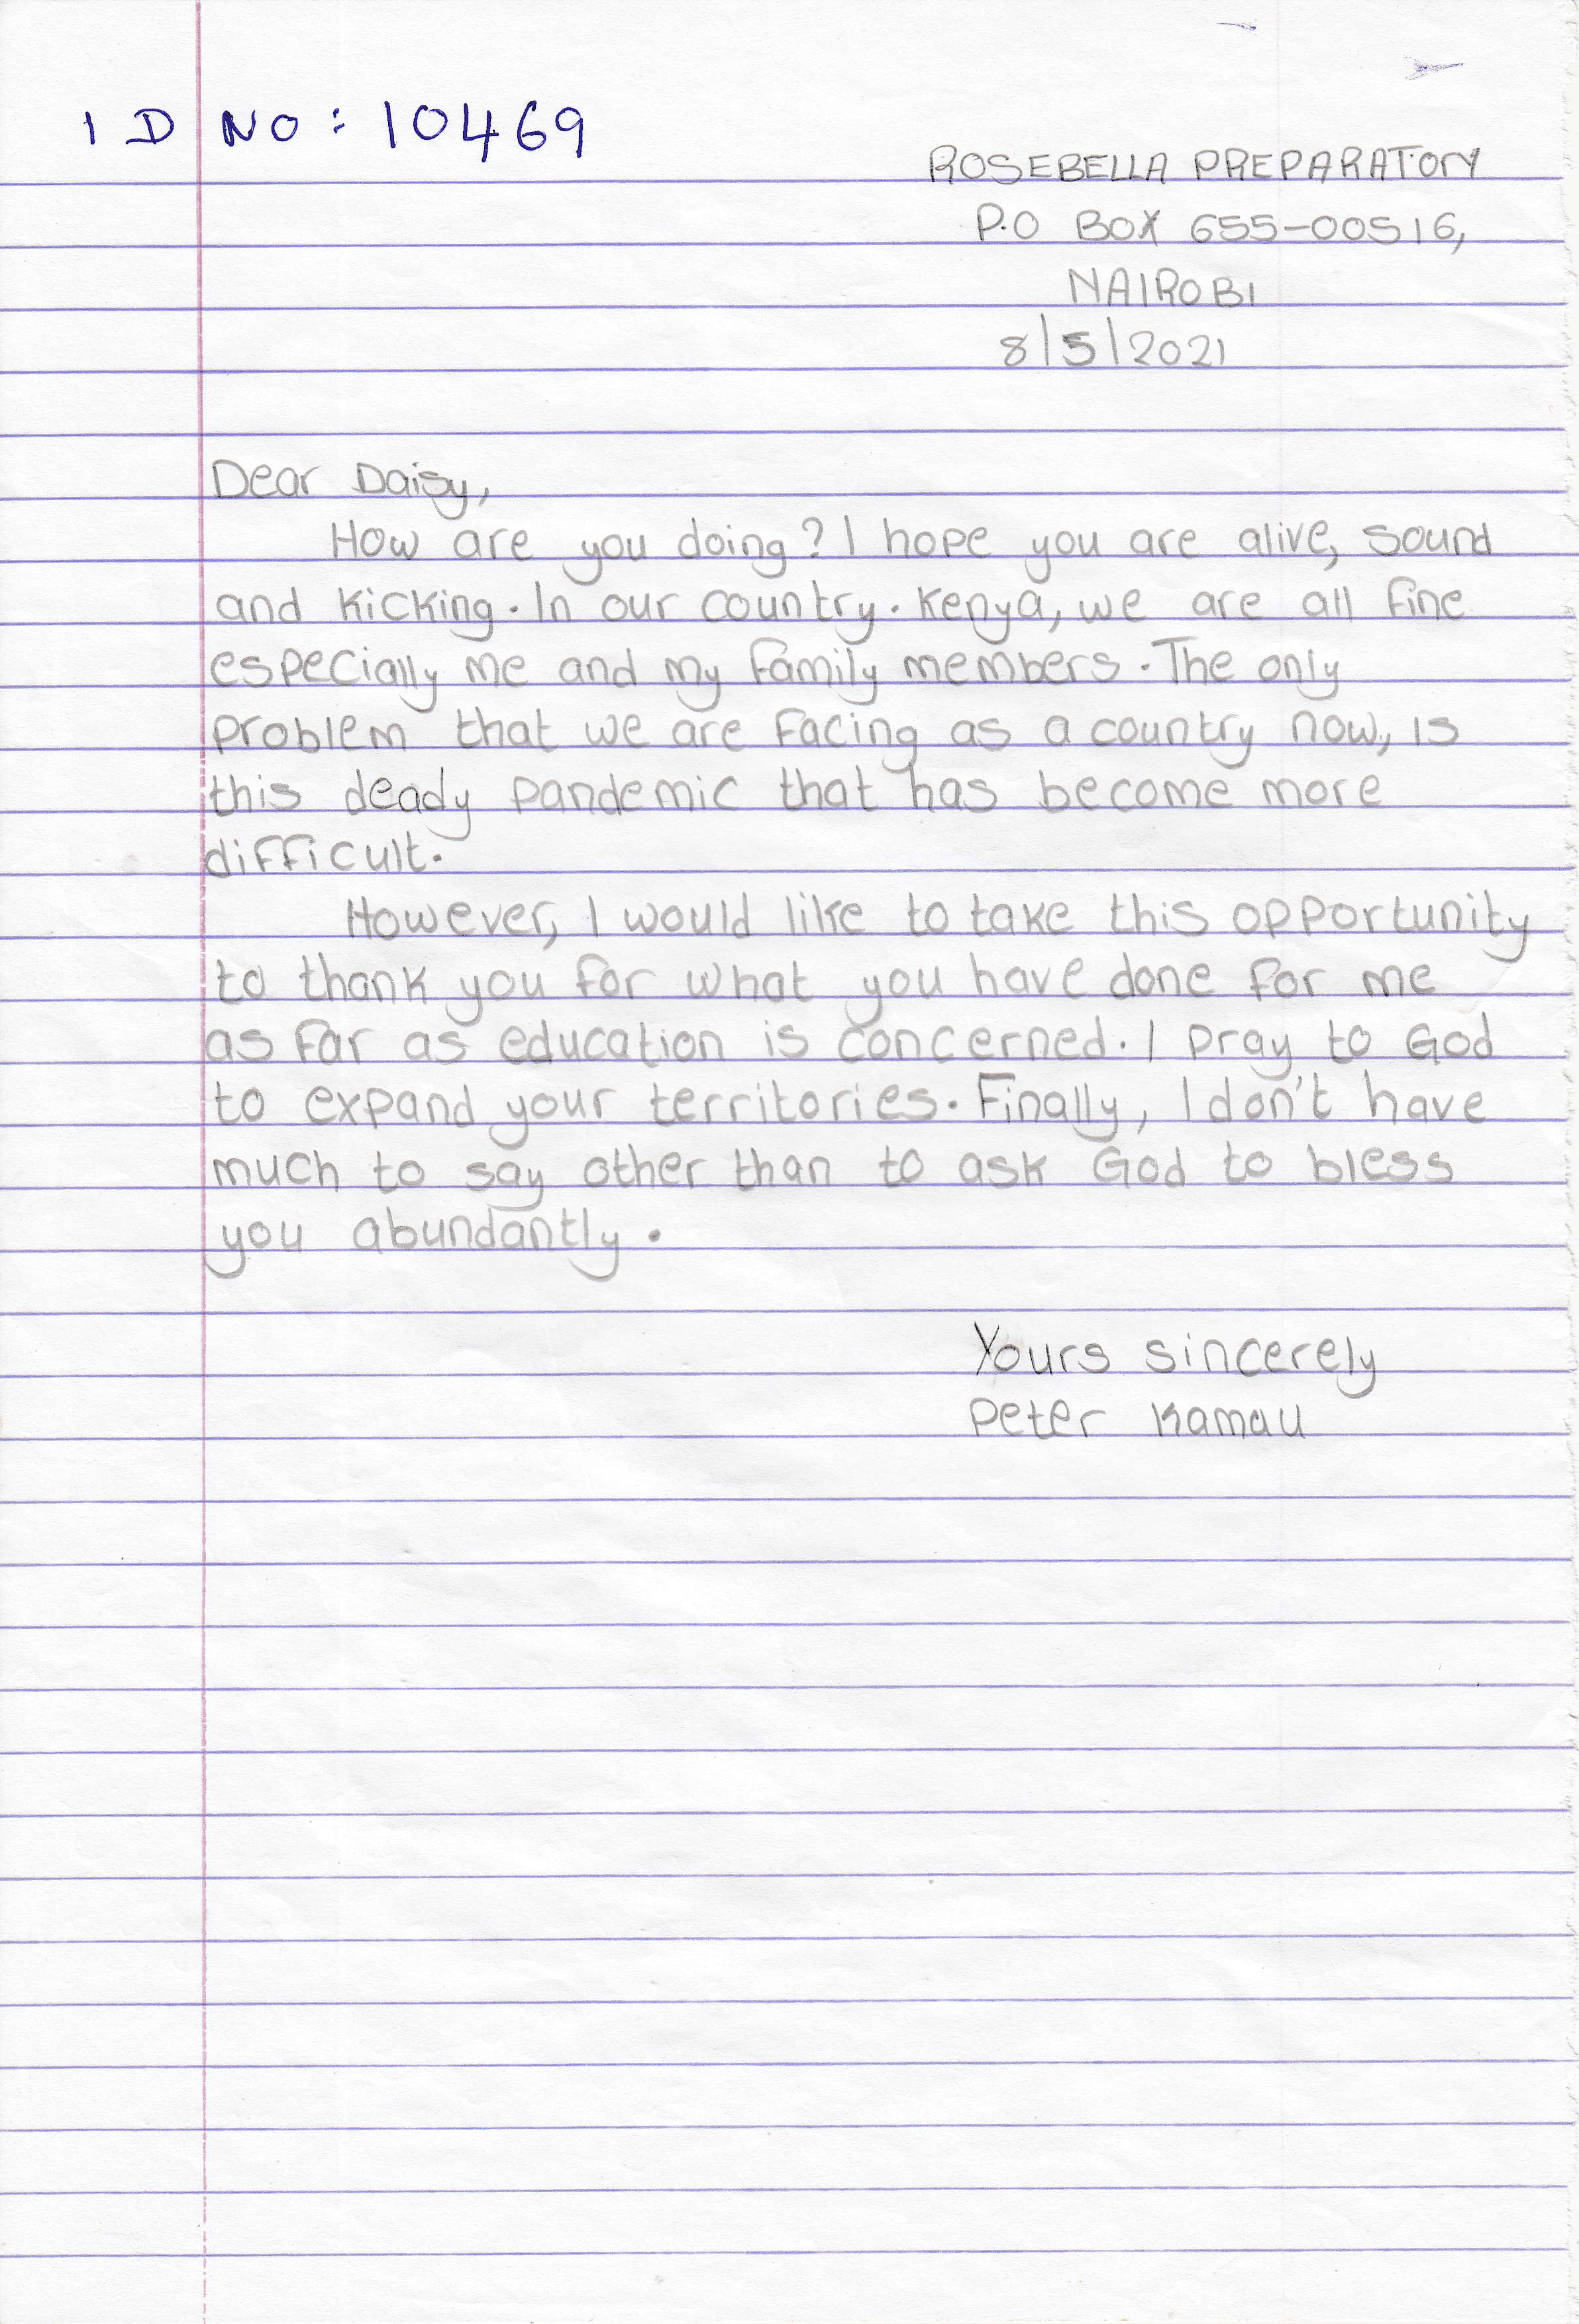 ID NO: 10469
ROSEBELLA PREPARATORY
P.O BOX 655-00516,
NAIROBI
8/5/2021
Dear Daisy,
How are you doing? I hope you are alive, sound
and kicking. In our country. Kenya, we are all fine
especially me and my family members. The only
problem that we are facing as a country now, is
this deady pandemic that has become more
difficult.
However, I would like to take this opportunity
to thank you for what you have done for me
as far as education is concerned. I pray to God
to expand your territories. Finally, I don't have
much to say other than to ask God to bless
you abundantly.
Yours sincerely
Peter Kamau